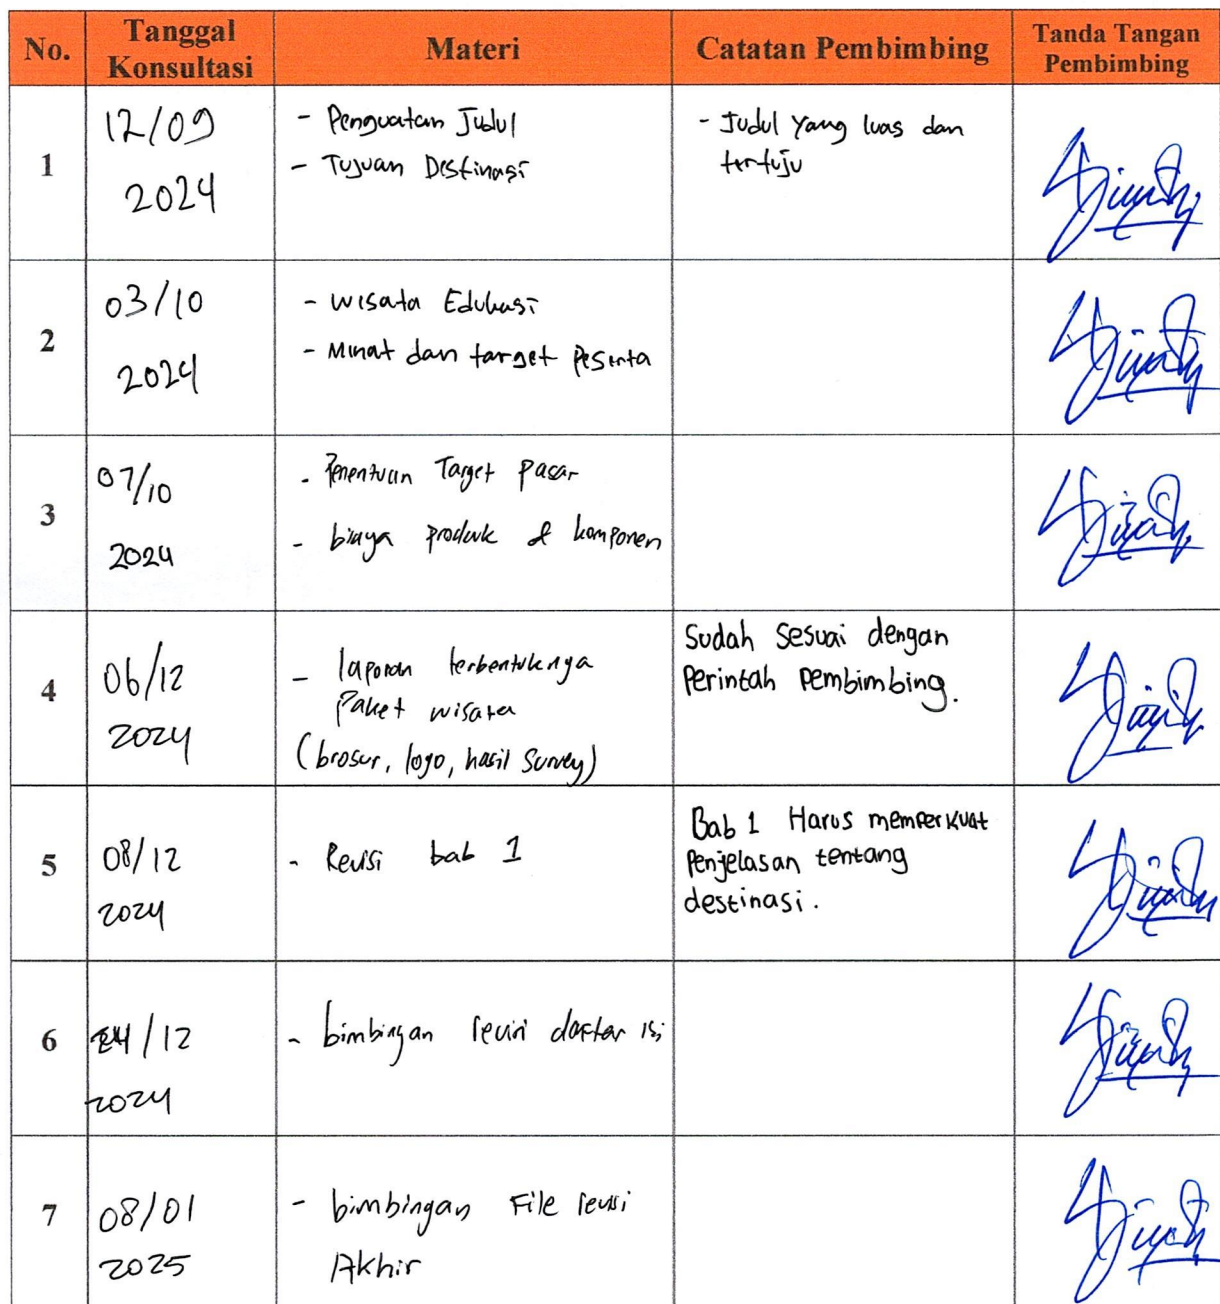 No.
Tanggal
Konsultasi
Materi
Catatan Pembimbing
Tanda Tangan
Pembimbing
1
12/09
2024
- Penguatan Judul
- Tujuan Destinasi
- Judul Yang luas dan
tertuju
2
03/10
2024
- Wisata Edukasi
- Minat dan target Peserta
3
07/10
2024
- Penentuan Target Pasar
- biaya produk & komponen
4
06/12
2024
- laporan terbentuknya
Paket wisata
(brosur, logo, hasil Survey)
Sudah Sesuai dengan
Perintah Pembimbing.
5
08/12
2024
- Revisi bab 1
Bab 1 Harus memperkuat
Penjelasan tentang
destinasi.
6
24/12
2024
- bimbingan revisi daftar isi
7
08/01
2025
- bimbingan File revisi
Akhir